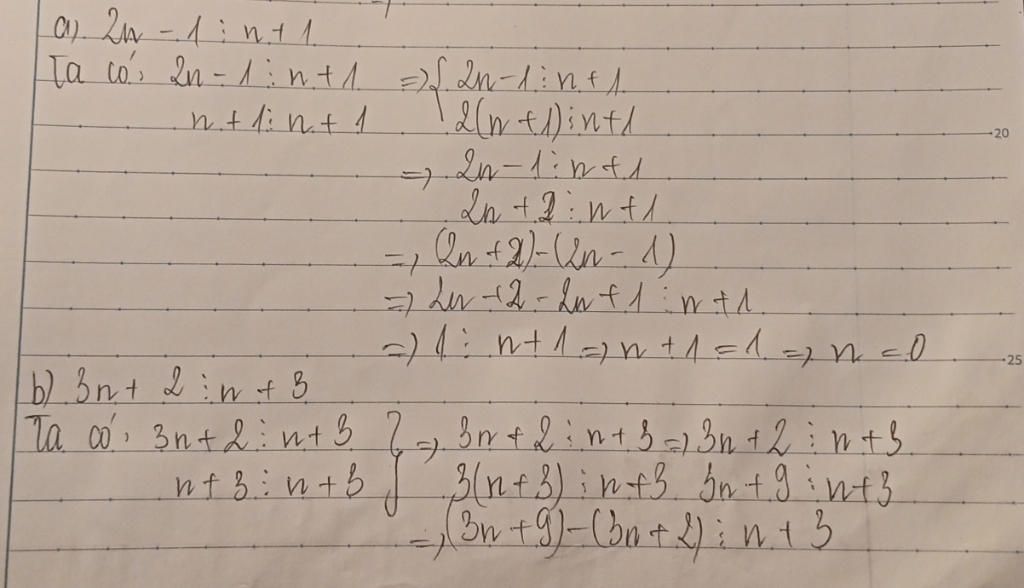 a) 2n - 1 ⋮ n + 1
Ta có: 2n - 1 ⋮ n + 1 => { 2n - 1 ⋮ n + 1
n + 1 ⋮ n + 1 2(n + 1) ⋮ n + 1
20
=> 2n - 1 ⋮ n + 1
2n + 2 ⋮ n + 1
=> (2n + 2) - (2n - 1)
=> 2n + 2 - 2n + 1 ⋮ n + 1
=> 1 ⋮ n + 1 => n + 1 = 1 => n = 0
25
b) 3n + 2 ⋮ n + 3
Ta có: 3n + 2 ⋮ n + 3 } => 3n + 2 ⋮ n + 3 => 3n + 2 ⋮ n + 3
n + 3 ⋮ n + 3 3(n + 3) ⋮ n + 3 3n + 9 ⋮ n + 3
=> (3n + 9) - (3n + 2) ⋮ n + 3